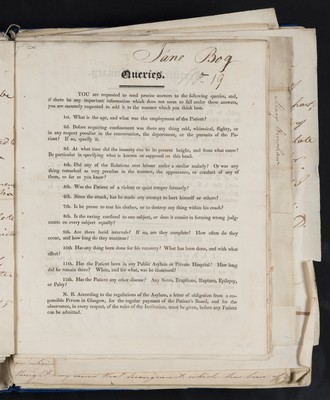 Jane Bog
No. 19
Queries.
YOU are requested to send precise answers to the following queries, and,
if there be any important information which does not seem to fall under these answers,
you are earnestly requested to add it in the manner which you think best.
1st. What is the age, and what was the employment of the Patient?
2d. Before requiring confinement was there any thing odd, whimsical, flighty, or
in any respect peculiar in the conversation, the deportment, or the pursuits of the Pa-
tient? If so, specify it.
3d. At what time did the insanity rise to its present height, and from what cause?
Be particular in specifying what is known or supposed on this head.
4th. Did any of the Relations ever labour under a similar malady? Or was any
thing remarked as very peculiar in the manner, the appearance, or conduct of any of
them, so far as you know?
5th. Was the Patient of a violent or quiet temper formerly?
6th. Since the attack, has he made any attempt to hurt himself or others?
7th. Is he prone to tear his clothes, or to destroy any thing within his reach?
8th. Is the raving confined to one subject, or does it consist in forming wrong judg-
ments on every subject equally?
9th. Are there lucid intervals? If so, are they complete? How often do they
occur, and how long do they continue?
10th. Has any thing been done for his recovery? What has been done, and with what
effect?
11th. Has the Patient been in any Public Asylum or Private Hospital? How long
did he remain there? When, and for what, was he dismissed?
12th. Has the Patient any other disease? Any Sores, Eruptions, Rupture, Epilepsy,
or Palsy?
N. B. According to the regulations of the Asylum, a letter of obligation from a res-
ponsible Person in Glasgow, for the regular payment of the Patient's Board, and for the
observance, in every respect, of the rules of the Institution, must be given, before any Patient
can be admitted.